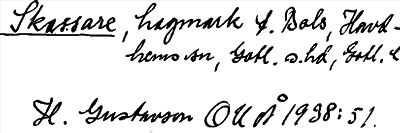 Skassare, hagmark f. Dals, Havd-
hem sn, Gotl. s. hd, Gotl. l
H. Gustavson OUÅ 1938:51.